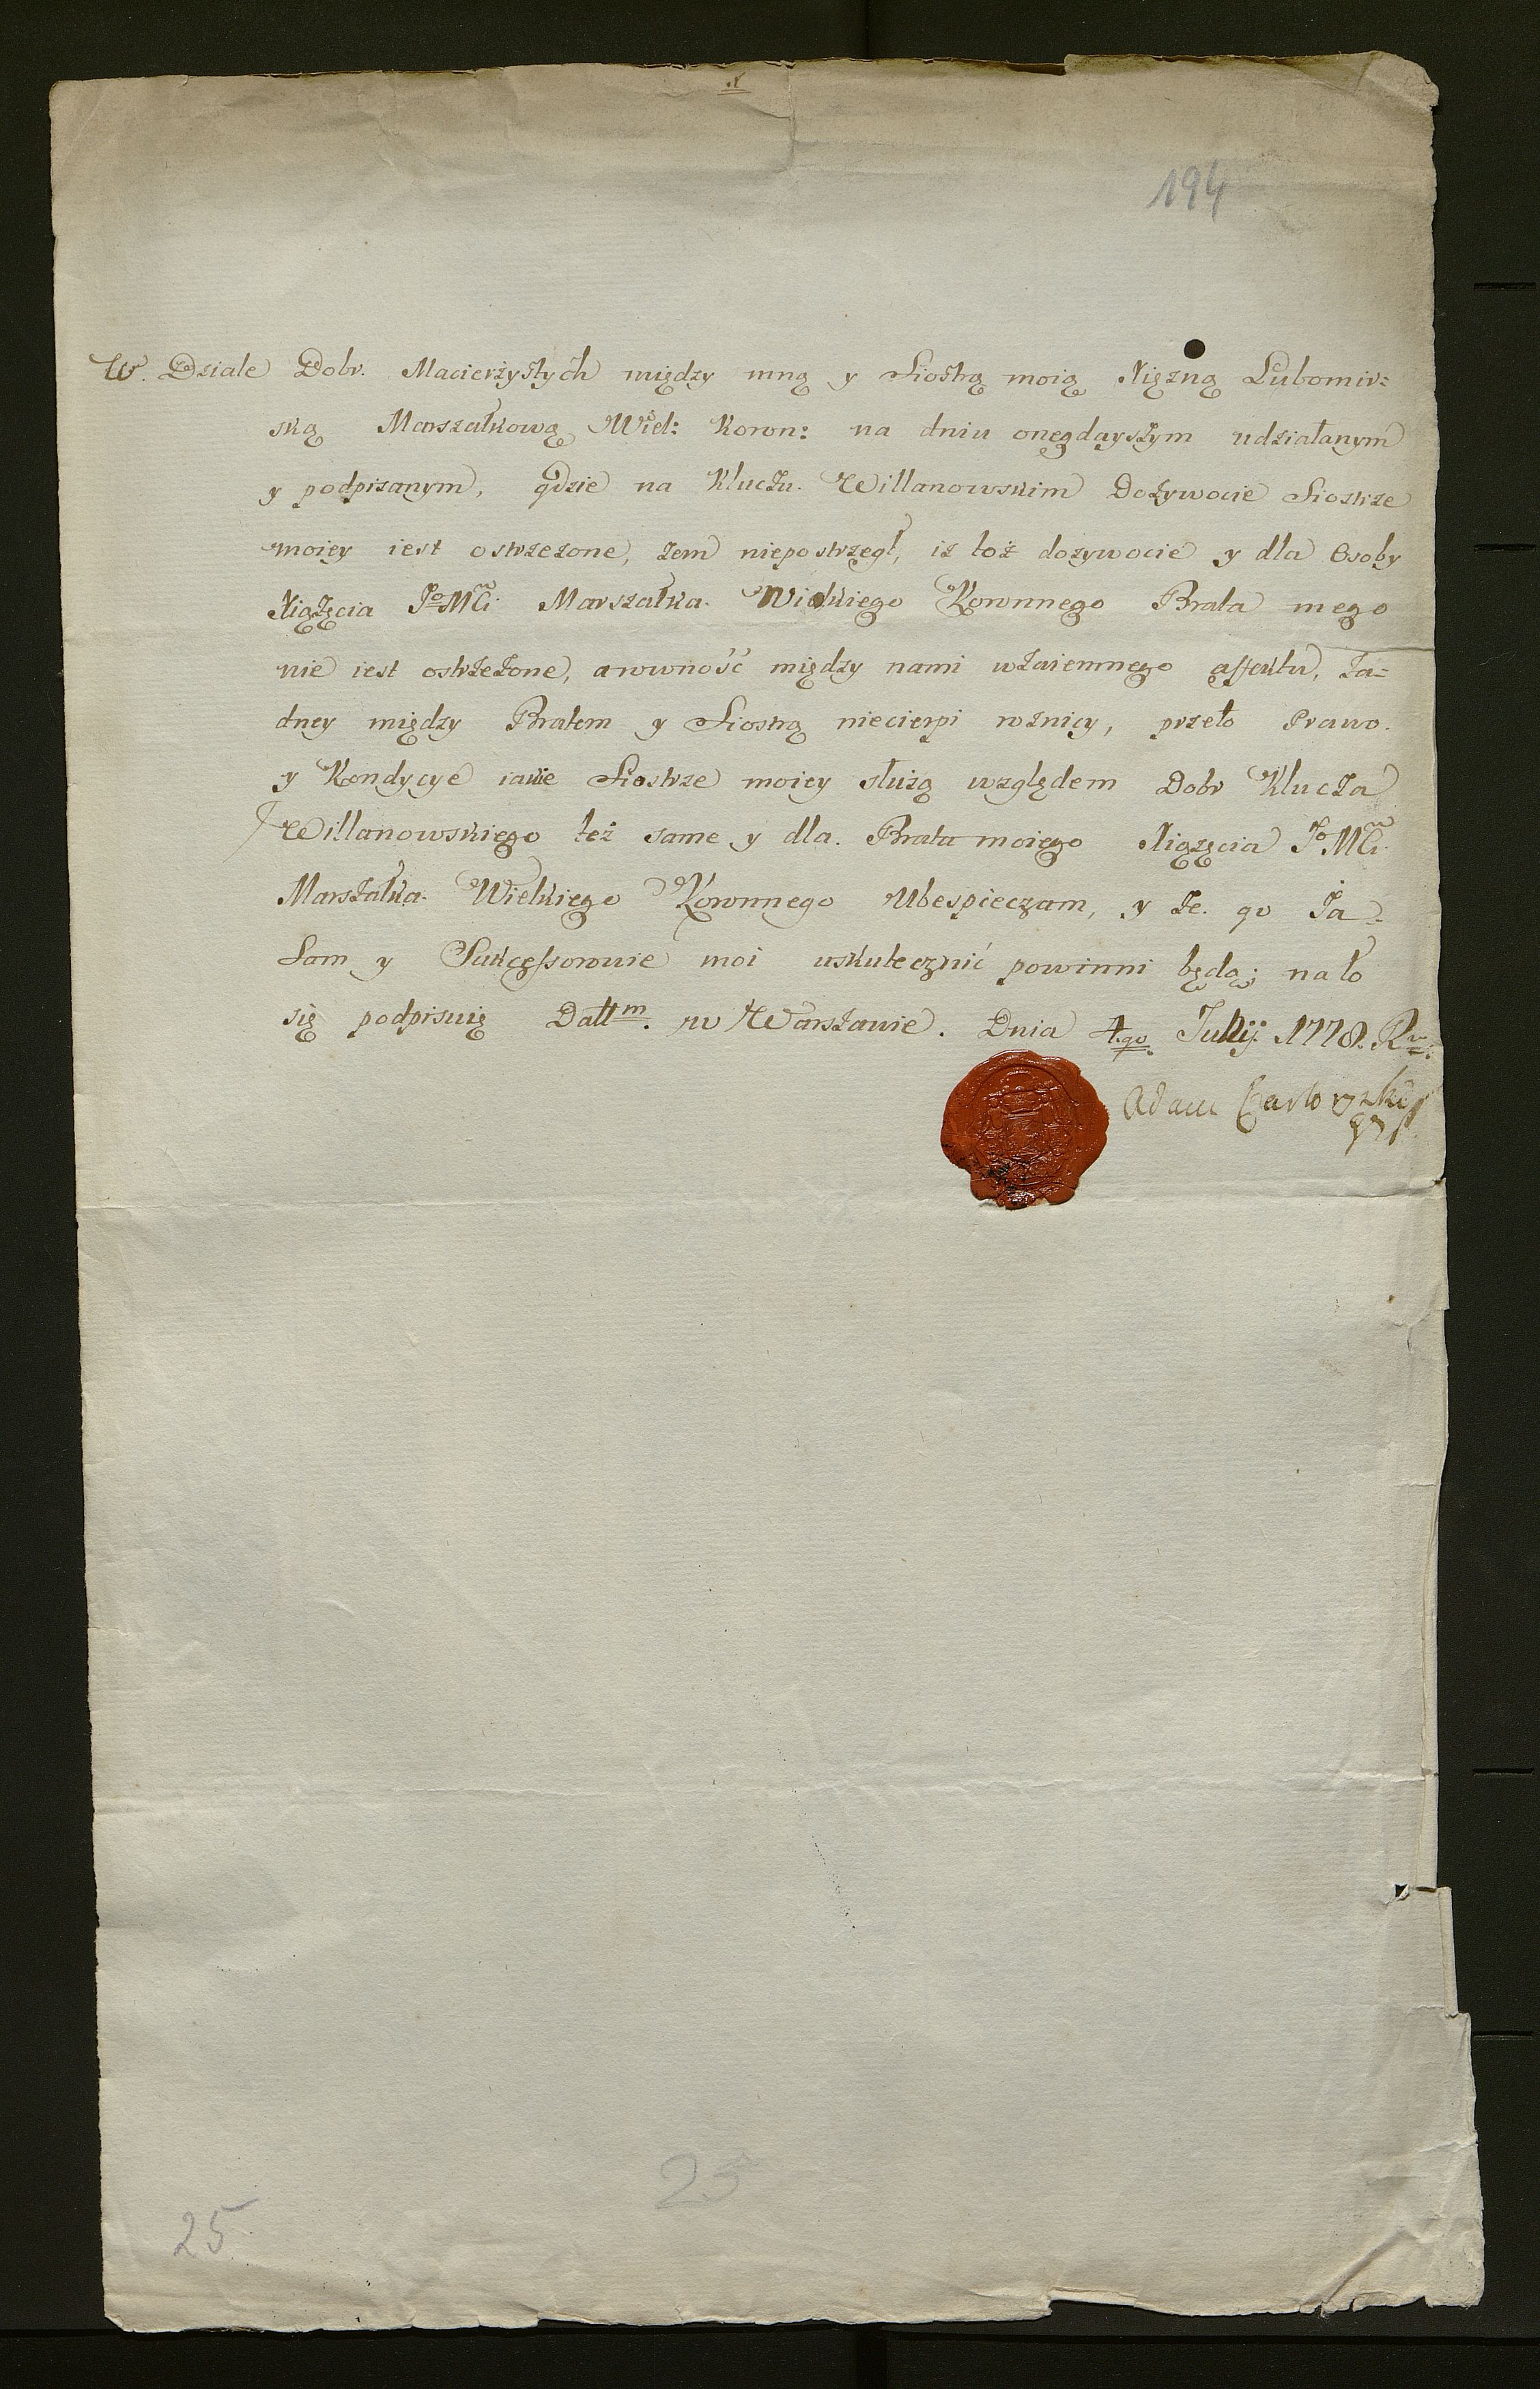 194
W. Dziale Dobr. Macierzystych między mną y Siostrą moią Xiężną Lubomir=
ską Marszałkową Wiel: Koron: na dniu onegdayszym udziałanym
y podpisanym, gdzie na Kluczu Willanowskim Dożywocie Siostrze
moiey iest ostrzezone, zem niepostrzegł, iz toż dozywocie y dla Osoby
Xiążęcia Jo MCi Marszałka Wielkiego Koronnego Brata mego
nie iest ostrzeżone, a rowność między nami wzaiemnego affektu, ża=
dney między Bratem y Siostrą niecierpi rożnicy, przeto Prawo
y Kondycye iakie Siostrze moiey służą względem Dobr Klucza
Willanowskiego też same y dla Brata moiego Xiążęcia Jo MCi
Marszałka Wielkiego Koronnego Ubespieczam, y że go Ja
Sam y Sukcessorowie moi uskutecznić powinni będą; na to
się podpisuię Datt m. w Warszawie. Dnia 4.go Julij 1778. R.
Adam Czartoryski
25
25